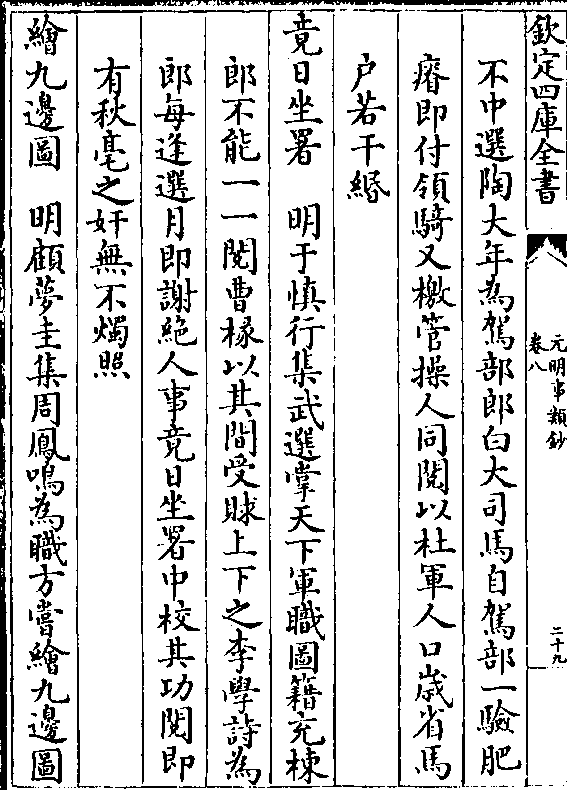 欽定四庫全書
元明事類鈔
卷八
二十九
不中選陶大年為駕部郎白大司馬自駕部一驗肥
瘠即付領騎又檄管操人同閱以杜軍人口歲省馬
户若干緡
竟日坐署　明于慎行集武選掌天下軍職圖籍充棟
郎不能一一閱曹椽以其間受賕上下之李學詩為
郎每逢選月即謝絕人事竟日坐署中校其功閱即
有秋毫之奸無不燭照
繪九邊圖　明顧夢圭集周鳳鳴為職方嘗繪九邊圖